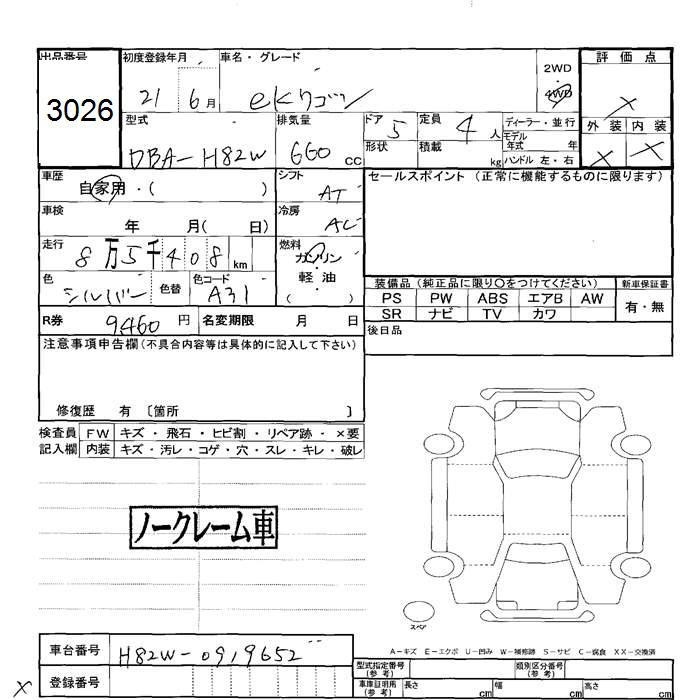 出品番号
3026
初度登録年月
21 6月
車名・グレード
eKワゴン
2WD
4WD
評価点
×
外装 内装
× ×
型式
DBA-H82W
排気量
660 cc
ドア 5
形状
定員 4 人
積載 kg
ディーラー・並行
モデル年式 年
ハンドル 左・右
車歴
自家用・( )
シフト
AT
セールスポイント (正常に機能するものに限ります)
車検
年 月( 日)
冷房
AC
走行
8万5千408km
燃料
ガソリン
・
軽油
・
( )
色
シルバー
色替
色コード
A31
装備品 (純正品に限り〇をつけてください)
新車保証書
PS PW ABS エアB AW
SR ナビ TV カワ
有・無
R券 9460 円
名変期限 月 日
後日品
注意事項申告欄(不具合内容等は具体的に記入して下さい)
修復歴 有 〔箇所 〕
検査員
記入欄
FW キズ・飛石・ヒビ割・リペア跡・×要
内装 キズ・汚レ・コゲ・穴・スレ・キレ・破レ
ノークレーム車
スペア
A-キズ E-エクボ U-凹み W-補修跡 S-サビ C-腐食 XX-交換済
車台番号 H82W-0919652
登録番号
×
型式指定番号
(参考)
類別区分番号
(参考)
車庫証明用
(参考)
長さ cm
幅 cm
高さ cm